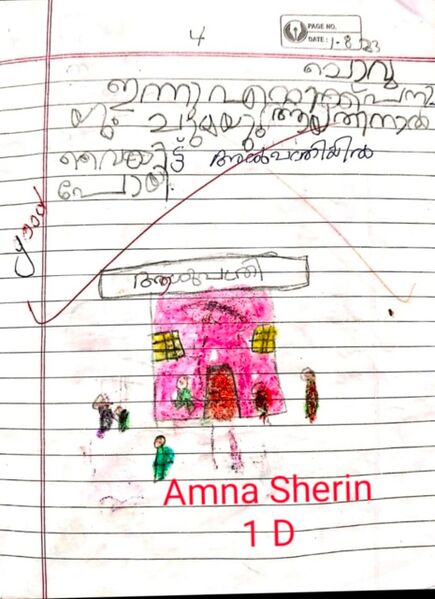 4
PAGE NO.
DATE: 1-8-23
ചൊവ്വ
ഇന്നു എനിക്ക് പനി
യും ചുമയും ആയതിനാൽ
വൈകിട്ട് ആശുപത്രിയിൽ
പോയി.
ആശുപത്രി
Amna Sherin
1 D